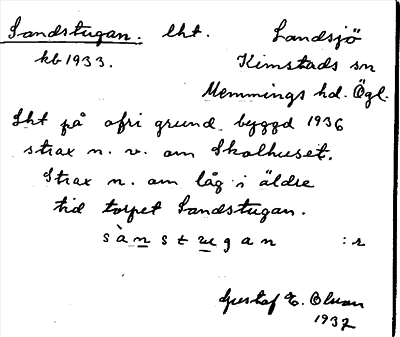 Sandstugan. lht. Landsjö
kb 1933. Kimstads sn
Memmings hd. Ögl.
Lht på ofri grund byggd 1936
strax n. v. om Skolhuset.
Strax n. om låg i äldre
tid torpet Sandstugan.
sànstugan :r
Gustaf E. Olson
1937